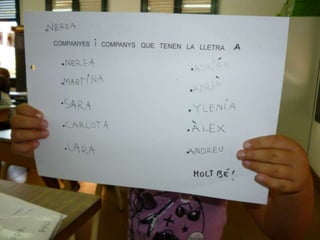 NEREA
COMPANYES i COMPANYS QUE TENEN LA LLETRA A
NEREA
MARTINA
SARA
CARLOTA
LARA
ADRIÁN
ADRIÀ
YLENIA
ÀLEX
ANDREU
MOLT BÉ!